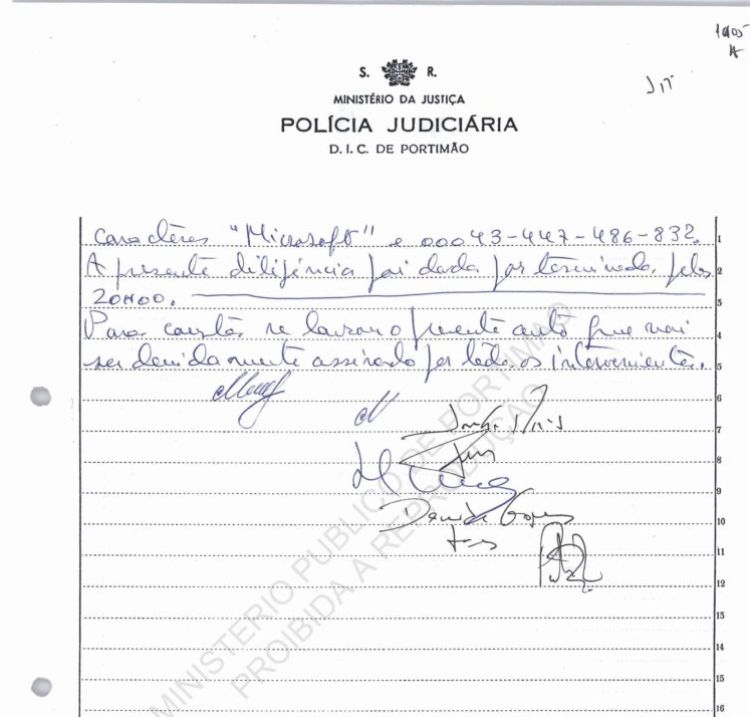 1005
S. R.
MINISTÉRIO DA JUSTIÇA
POLÍCIA JUDICIÁRIA
D. I. C. DE PORTIMÃO
caractères "Microsoft" e 00043-447-486-832. 1
A presente diligência foi dada por terminada, pelas 2
20H00. 3
Para constar se lavrou o presente auto que vai 4
ser devidamente assinado por todos os intervenientes. 5
6
7
8
9
10
11
12
13
14
15
16
MINISTERIO PUBLICO DE PORTIMAO
PROIBIDA A REPRODUÇÃO